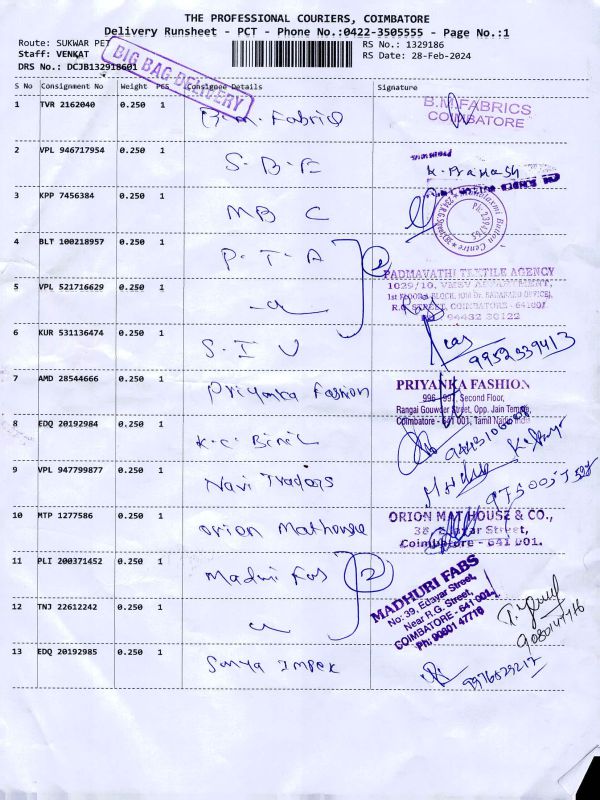 THE PROFESSIONAL COURIERS, COIMBATORE
Delivery Runsheet - PCT - Phone No.:0422-3505555 - Page No.:1
Route: SUKWAR PET
RS No.: 1329186
Staff: VENKAT
RS Date: 28-Feb-2024
DRS No.: DCJB132918601
BIG BAG DELIVERY
S No Consignment No Weight PCS Consignee Details Signature
1 TVR 2162040 0.250 1 B.M. Fabric
B.M.FABRICS
COIMBATORE
2 VPL 946717954 0.250 1 S.B.E
K. Prakash
3 KPP 7456384 0.250 1 MB C
Mahalaxmi Button Centre
4 BLT 100218957 0.250 1 P.T.A 2
PADMAVATHI TEXTILE AGENCY
5 VPL 521716629 0.250 1
COIMBATORE - 641001.
94432 30122
6 KUR 531136474 0.250 1 S.I.U
9952339413
7 AMD 28544666 0.250 1 Priyanka Fashion
PRIYANKA FASHION
996 - 997, Second Floor,
Rangai Gowder Street, Opp. Jain Temple,
Coimbatore - 641 001, Tamil Nadu India
8 EDQ 20192984 0.250 1
9 VPL 947799877 0.250 1 Navi Tradors
10 MTP 1277586 0.250 1 Orion Mathouse
ORION MAT HOUSZ & CO.,
38, Edayar Street,
Coimbatore - 641 001.
11 PLI 200371452 0.250 1 2
MADHURI FABS
No: 39, Edayar Street,
Near R.G. Street,
COIMBATORE - 641 001
Ph: 90801 47718
12 TNJ 22612242 0.250 1
13 EDQ 20192985 0.250 1 Sanya Impex